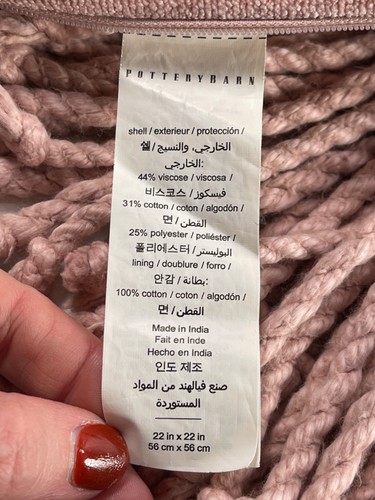 POTTERYBARN
shell / exterieur / protección /
쉘 / الخارجي، والنسيج
الخارجي:
44% viscose / viscosa /
비스코스 / فيسكوز
31% cotton / coton / algodón /
면 / القطن
25% polyester / poliéster /
폴리에스터 / البوليستر
lining / doublure / forro /
안감 / بطانة:
100% cotton / coton / algodón /
면 / القطن
Made in India
Fait en Inde
Hecho en India
인도 제조
صنع فيالهند من المواد
المستوردة
22 in x 22 in
56 cm x 56 cm